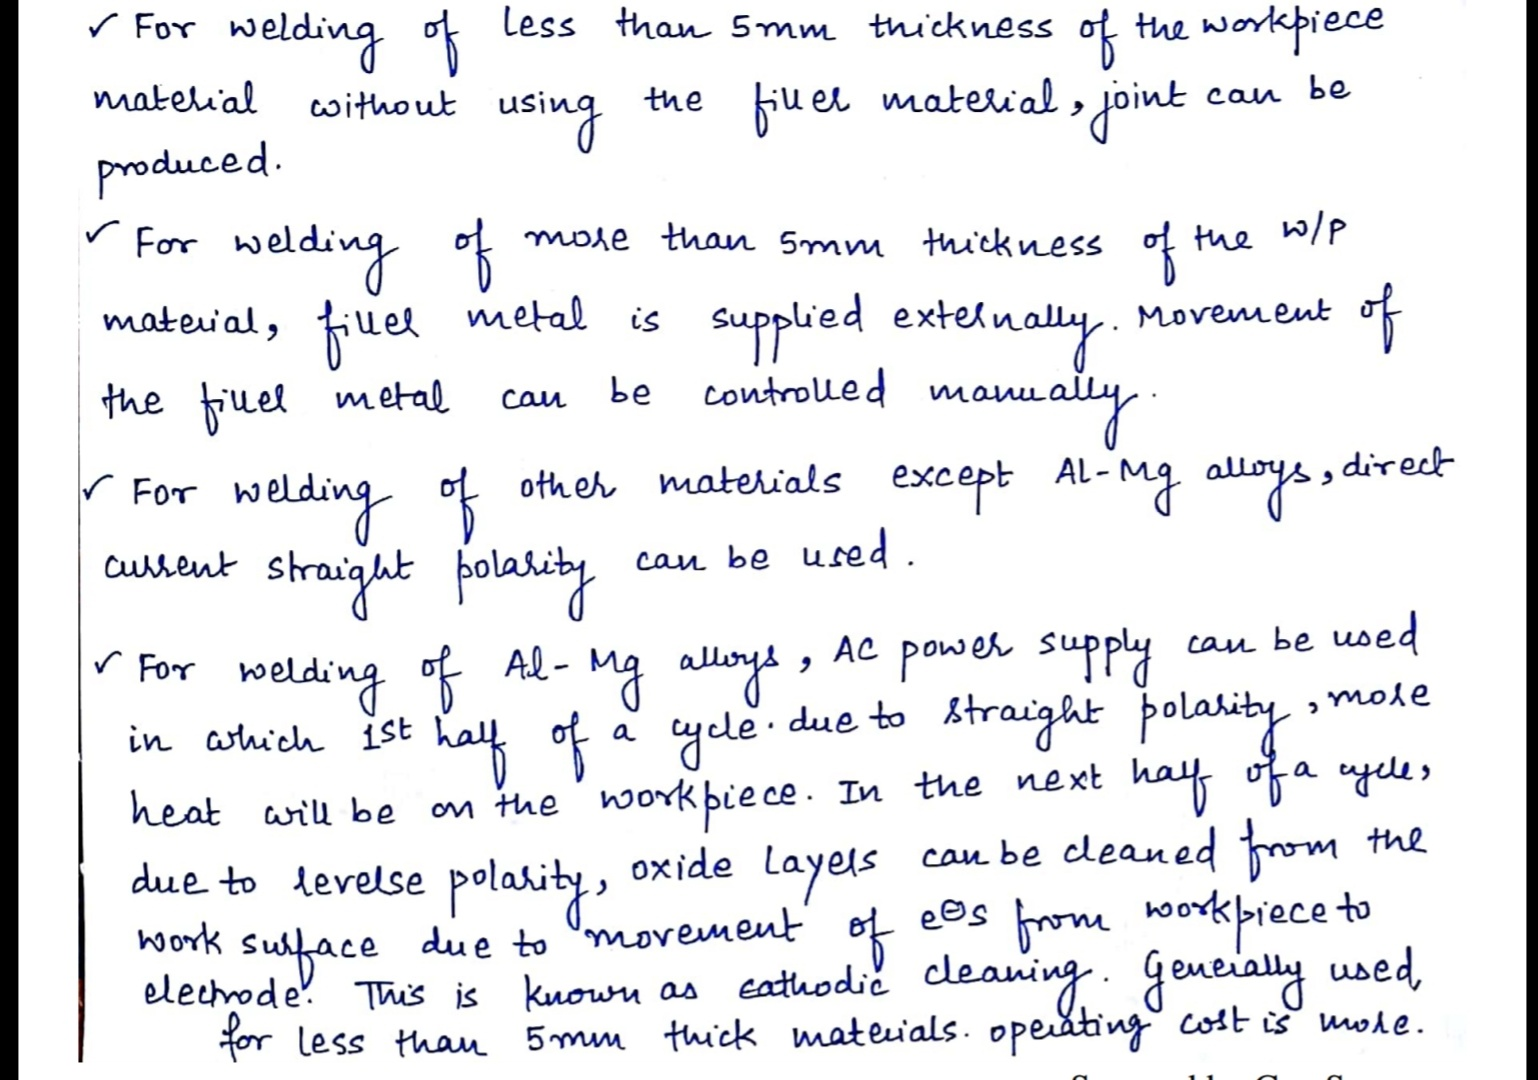 ✓ For welding of less than 5mm thickness of the workpiece
material without using the filler material, joint can be
produced.
✓ For welding of more than 5mm thickness of the w/p
material, filler metal is supplied externally. Movement of
the filler metal can be controlled manually.
✓ For welding of other materials except Al-Mg alloys, direct
current straight polarity can be used.
✓ For welding of Al-Mg alloys, AC power supply can be used
in which 1st half of a cycle. due to straight polarity, more
heat will be on the workpiece. In the next half of a cycle,
due to reverse polarity, oxide layers can be cleaned from the
work surface due to movement of e⊖s from workpiece to
electrode. This is known as cathodic cleaning. Generally used,
for less than 5mm thick materials. operating cost is more.